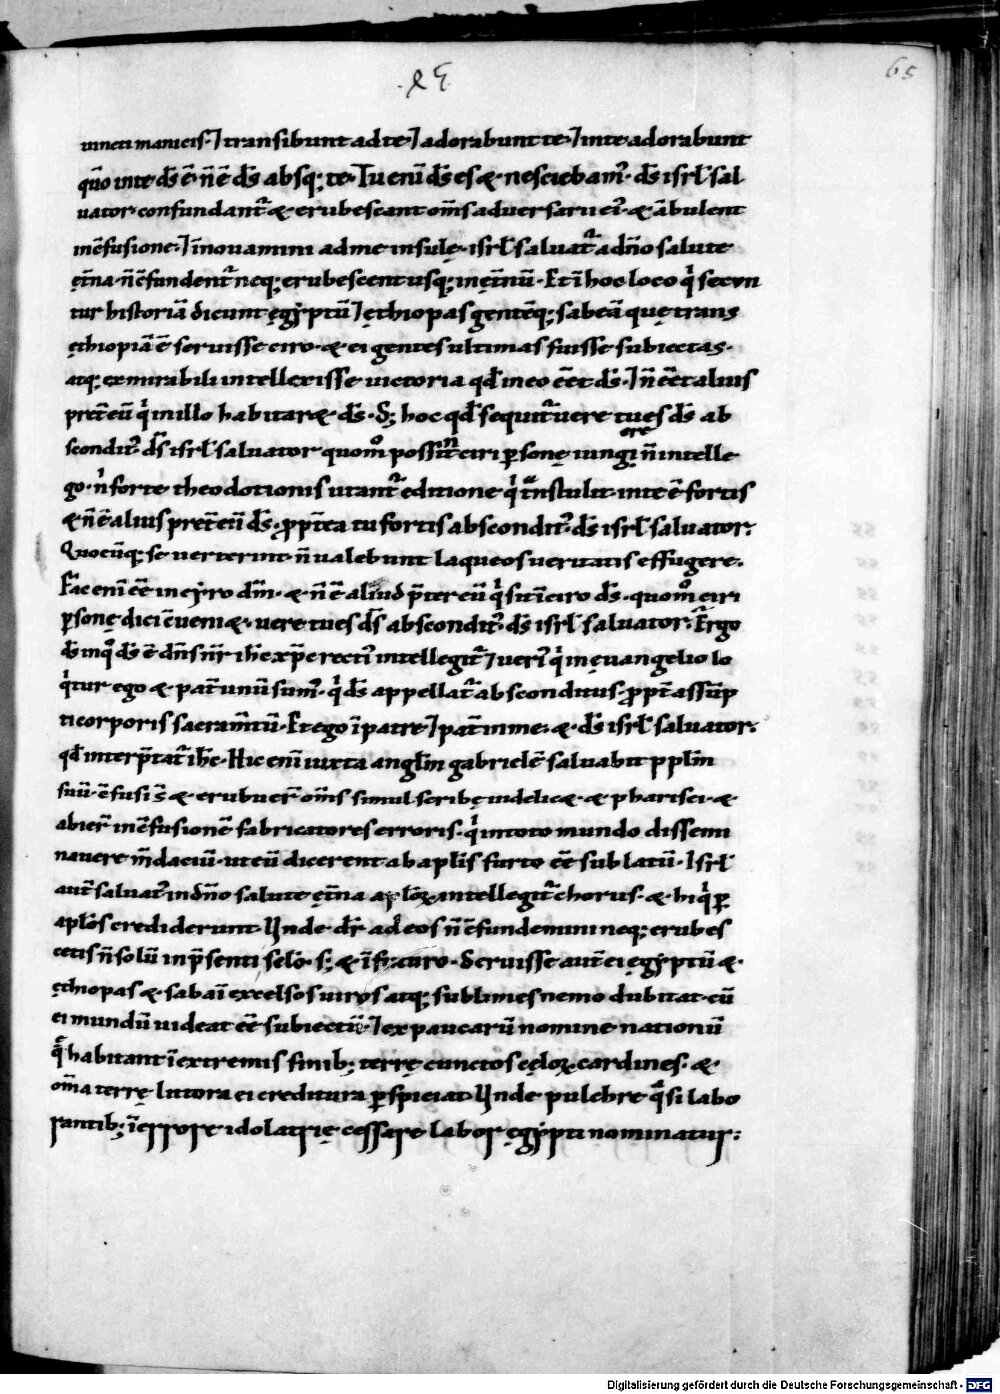 ·XL·
65
uincti manicis· ⁊ transibunt ad te ⁊ adorabunt te· ⁊ in te adorabunt
quō in te ds̄ ē· ⁊ n̄ ē ds̄ absq; te· Tu enī ds̄ es & nesciebam᾽· ds̄ isrl̄ sal
uator· confundant᷑ & erubescant om̄s aduersarii ei᾽· & ābulent
in ↄ̄fusione· ⁊ īnouamini ad me insulę· isrl̄ saluat᷑ a dn̄o salute
ęt̄na· n̄ ↄ̄fundent᷑ neq; erubescent usq; in ęt̄nū· Et ī hoc loco q̇ secun
tur historiā dicunt ęgyptū ⁊ ęthiopas gentēq; sabeā quę trans
ęthiopiā ē seruisse ciro· & ei gentes ultimas fuisse subiectas·
atq; ex mirabili intellexisse uictoria qd̄ in eo eēt ds̄· ⁊ n̄ eēt alius
pret̄ eū q̇ in illo habitar& ds̄· S; hoc qd̄ sequit᷑ uere tu es ds̄ ab
scondit᾽· ds̄ isrl̄ saluator quom̊ possit ciri p̱sonę iungi n̄ intelle
go· n̓ forte theodotionis utant᷑ editione q̇ t̄nstulit· in te ē fortis
& n̄ ē alius pret̄ eū ds̄· ꝓpt̄ea tu fortis abscondit᾽· ds̄ isrl̄ saluator·
Quocūq; se uerterint· n̄ ualebunt laqueos ueritatis effugere·
Fac enī eē in cyro dm̄· & n̄ ē aliud p̄ter eū q̇ sit ī ciro ds̄· quom̊ ciri
p̱sonę dici ↄ̄ueni&· uere tu es ds̄ abscondit᾽· ds̄ isrl̄ saluator· Ergo
ds̄ in q̊ ds̄ ē dn̄s nr̄ ih̄c xp̄c recti᾽ intellegit᷑ ⁊ ueri᾽ q̇ in ęuangelio lo
q̇tur ego & pat̄ unū sum᾽· q̇ ds̄ appellat᷑ absconditus· ꝓpt̄ assūp
ti corporis sacram̄tū· Et ego ī patre ⁊ pat̄ in me· & ds̄ isrl̄ saluator·
qd̄ interp̄tat᷑ ih̄c· Hic enī iuxta anglm̄ gabrielē saluabit pplm̄
suū· ↄ̄fusi s̄ & erubuer̄ om̄s simul scribę uidelic& & pharisei· &
abier̄ in ↄ̄fusionē fabricatores erroris· q̇ in toto mundo dissemi
nauere m̄daciū· ut eū dicerent ab apl̄is furto eē sublatū· Isrl̄
aut̄ saluat᾽ in dn̄o salute ęt̄na aplōꝝ intellegit᷑ chorus· & hi q̇ p̱
aplōs crediderunt Unde dr̄ ad eos n̄ ↄ̄fundemini neq; erubes
cetis n̄ solū in p̄senti sclō· s; & ī futuro· Seruisse aut̄ ei ęgyptū &
ęthiopas & sabaī excelsos uiros atq; sublimes nemo dubitat cū
ei mundū uideat eē subiectū· ⁊ ex paucarū nomine nationū
q̄ habitant ī extremis finib; terrę cunctos cęloꝝ cardines· &
om̄a terrę littora ei creditura p̱spiciat· Unde pulchre q̄si labo
rantib; ī errore idolatrię cessare labor ęgypti nominatur:
Digitalisierung gefördert durch die Deutsche Forschungsgemeinschaft - DFG